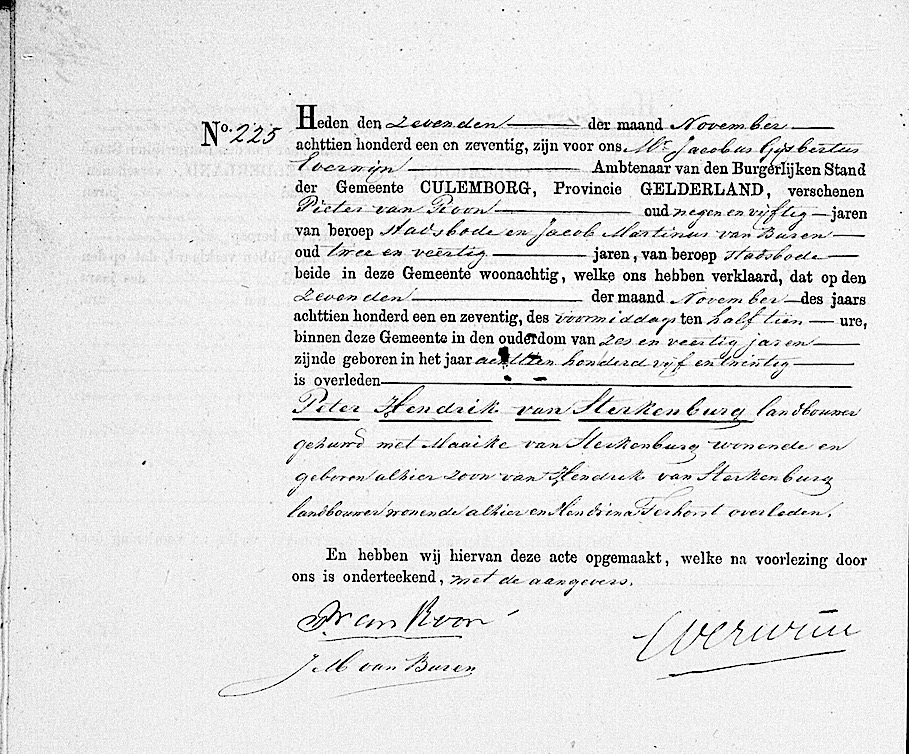 No. 225
Heden den zevenden der maand November
achttien honderd een en zeventig, zijn voor ons Mr. Jacobus Gijsbertus
Everwijn Ambtenaar van den Burgerlijken Stand
der Gemeente CULEMBORG, Provincie GELDERLAND, verschenen
Pieter van Roon oud negen en vijftig jaren
van beroep Stadsbode en Jacob Martinus van Buren
oud twee en veertig jaren, van beroep Stadsbode
beide in deze Gemeente woonachtig, welke ons hebben verklaard, dat op den
zevenden der maand November des jaars
achttien honderd een en zeventig, des voormiddags ten half tien ure,
binnen deze Gemeente in den ouderdom van zes en veertig jaren
zijnde geboren in het jaar achttien honderd vijf en twintig
is overleden
Peter Hendrik van Sterkenburg landbouwer
gehuwd met Maaike van Sterkenburg wonende en
geboren alhier zoon van Hendrik van Sterkenburg
landbouwer wonende alhier en Hendrina Terhorst overleden.
En hebben wij hiervan deze acte opgemaakt, welke na voorlezing door
ons is onderteekend, met de aangevers.
P van Roon
Everwijn
J M van Buren